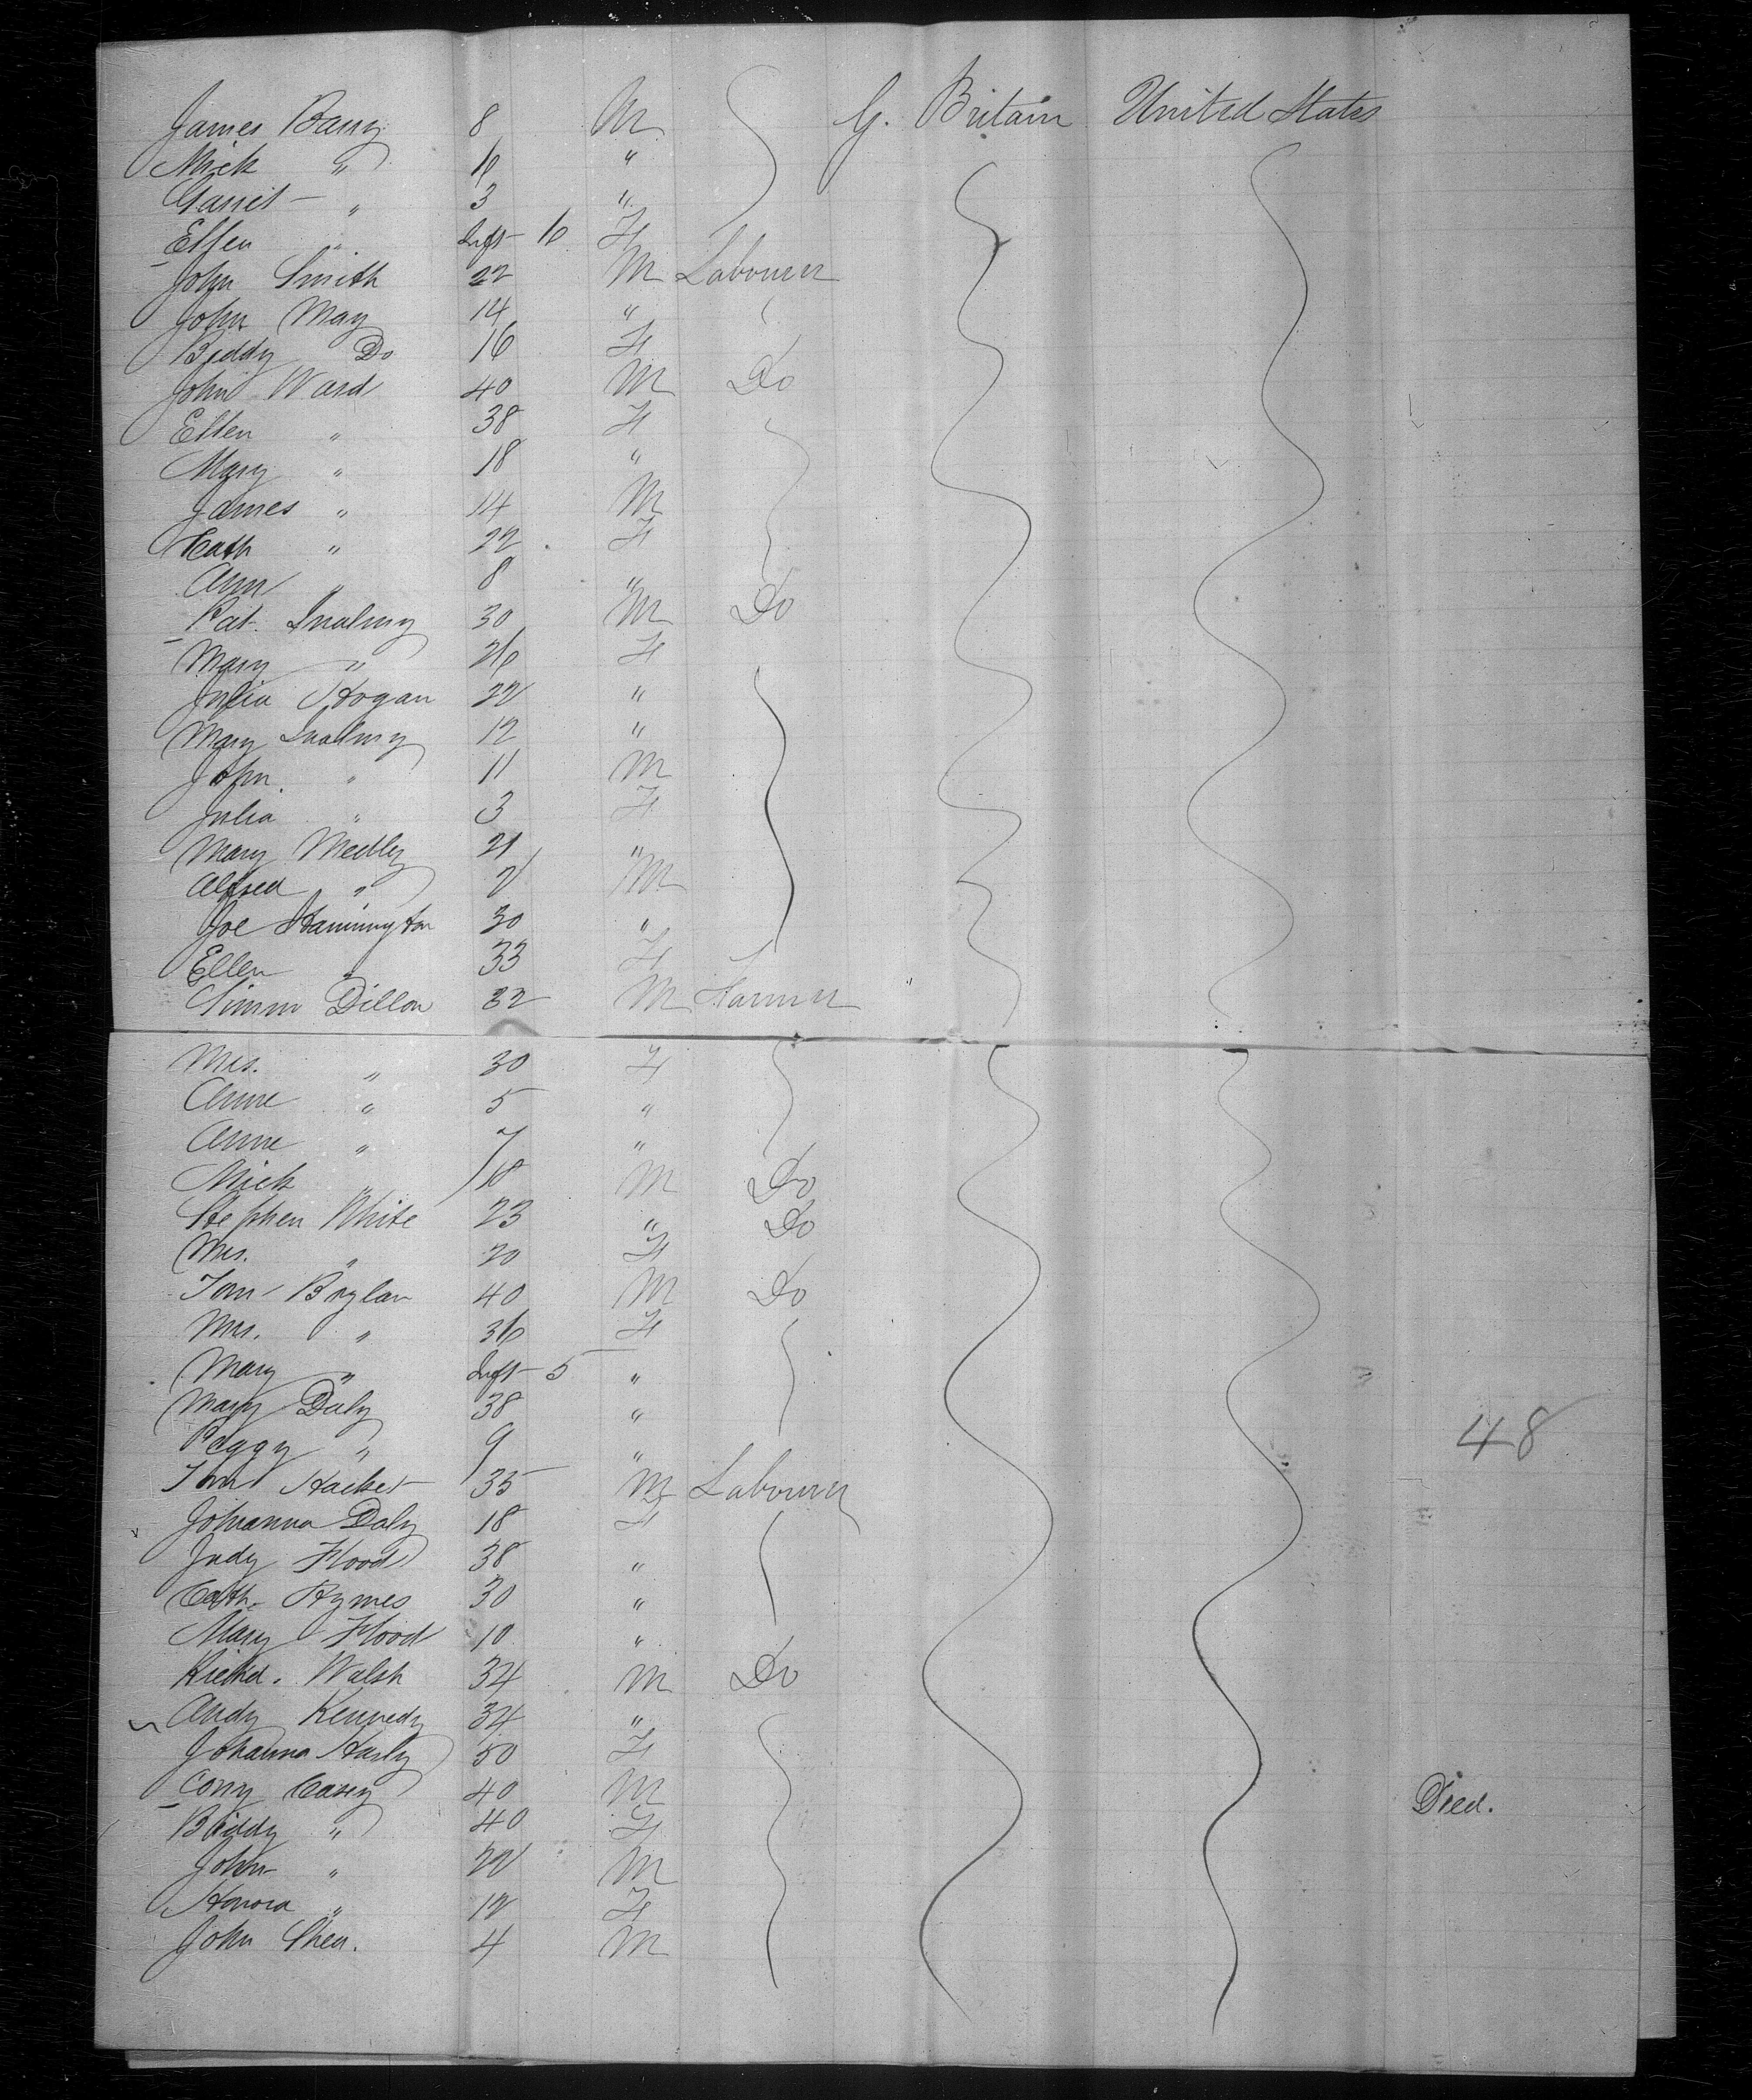 James Barry 8 M G. Britain United States
Mick " 6 "
Garret " 3 "
Ellen " Inft 10 F
John Smith 22 M Labourer
John May 14 "
Biddy Do 16 F
John Ward 40 M Do
Ellen " 38 F
Mary " 18 "
James " 14 M
Cath " 22 F
Ann " 8 "
Pat. 30 M Do
Mary " 26 F
Julia Hogan 22 "
Mary 12 "
John " 11 M
Julia " 3 F
Mary Medley 21 "
Alfred " 2 M
Joe Hannington 30 "
Ellen " 33 F
Simm Dillon 32 M Farmer
Mrs. " 30 F
Anne " 5 "
Anne " 7 "
Mick " 18 M Do
Stephen White 23 " Do
Mrs. " 20 F
Tom Boylan 40 M Do
Mrs. " 36 F
Mary " Inft 5 "
Mary Daly 38 "
Peggy " 9 "
48
Tom Hacket 35 M Labourer
Johanna Daly 18 F
Judy Flood 38 "
Cath. Hymes 30 "
Mary Flood 10 "
Richd. Walsh 34 M Do
Andy Kennedy 34 "
Johanna Harty 50 F
Cony Casey 40 M Died.
Biddy " 40 F
John " 22 M
Honora " 12 F
John Shea. 4 M